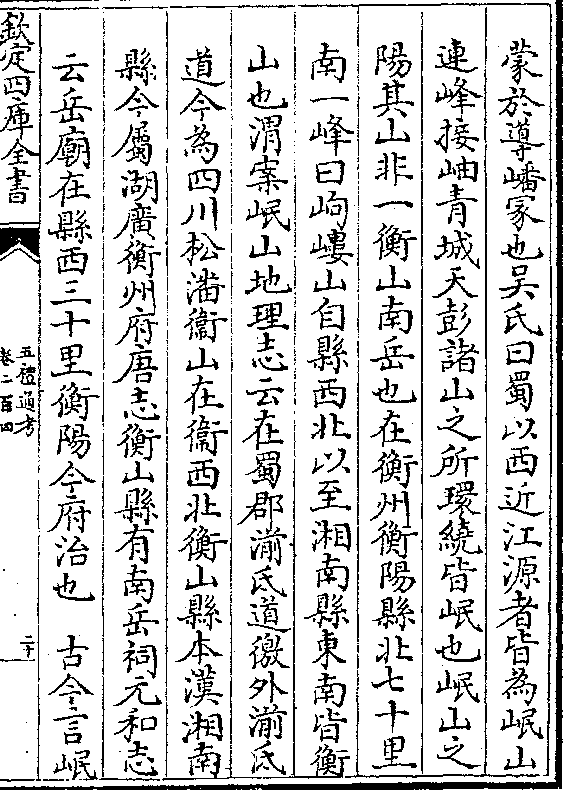 蒙於導嶓冢也吳氏曰蜀以西近江源者皆為岷山
連峰接岫青城天彭諸山之所環繞皆岷也岷山之
陽其山非一衡山南岳也在衡州衡陽縣北七十里
南一峰曰岣嶁山自縣西北以至湘南縣東南皆衡
山也渭案岷山地理志云在蜀郡湔氐道徼外湔氐
道今為四川松潘衛山在衛西北衡山縣本漢湘南
縣今屬湖廣衡州府唐志衡山縣有南岳祠元和志
云岳廟在縣西三十里衡陽今府治也　古今言岷
欽定四庫全書
五禮通考
卷二百四
二十